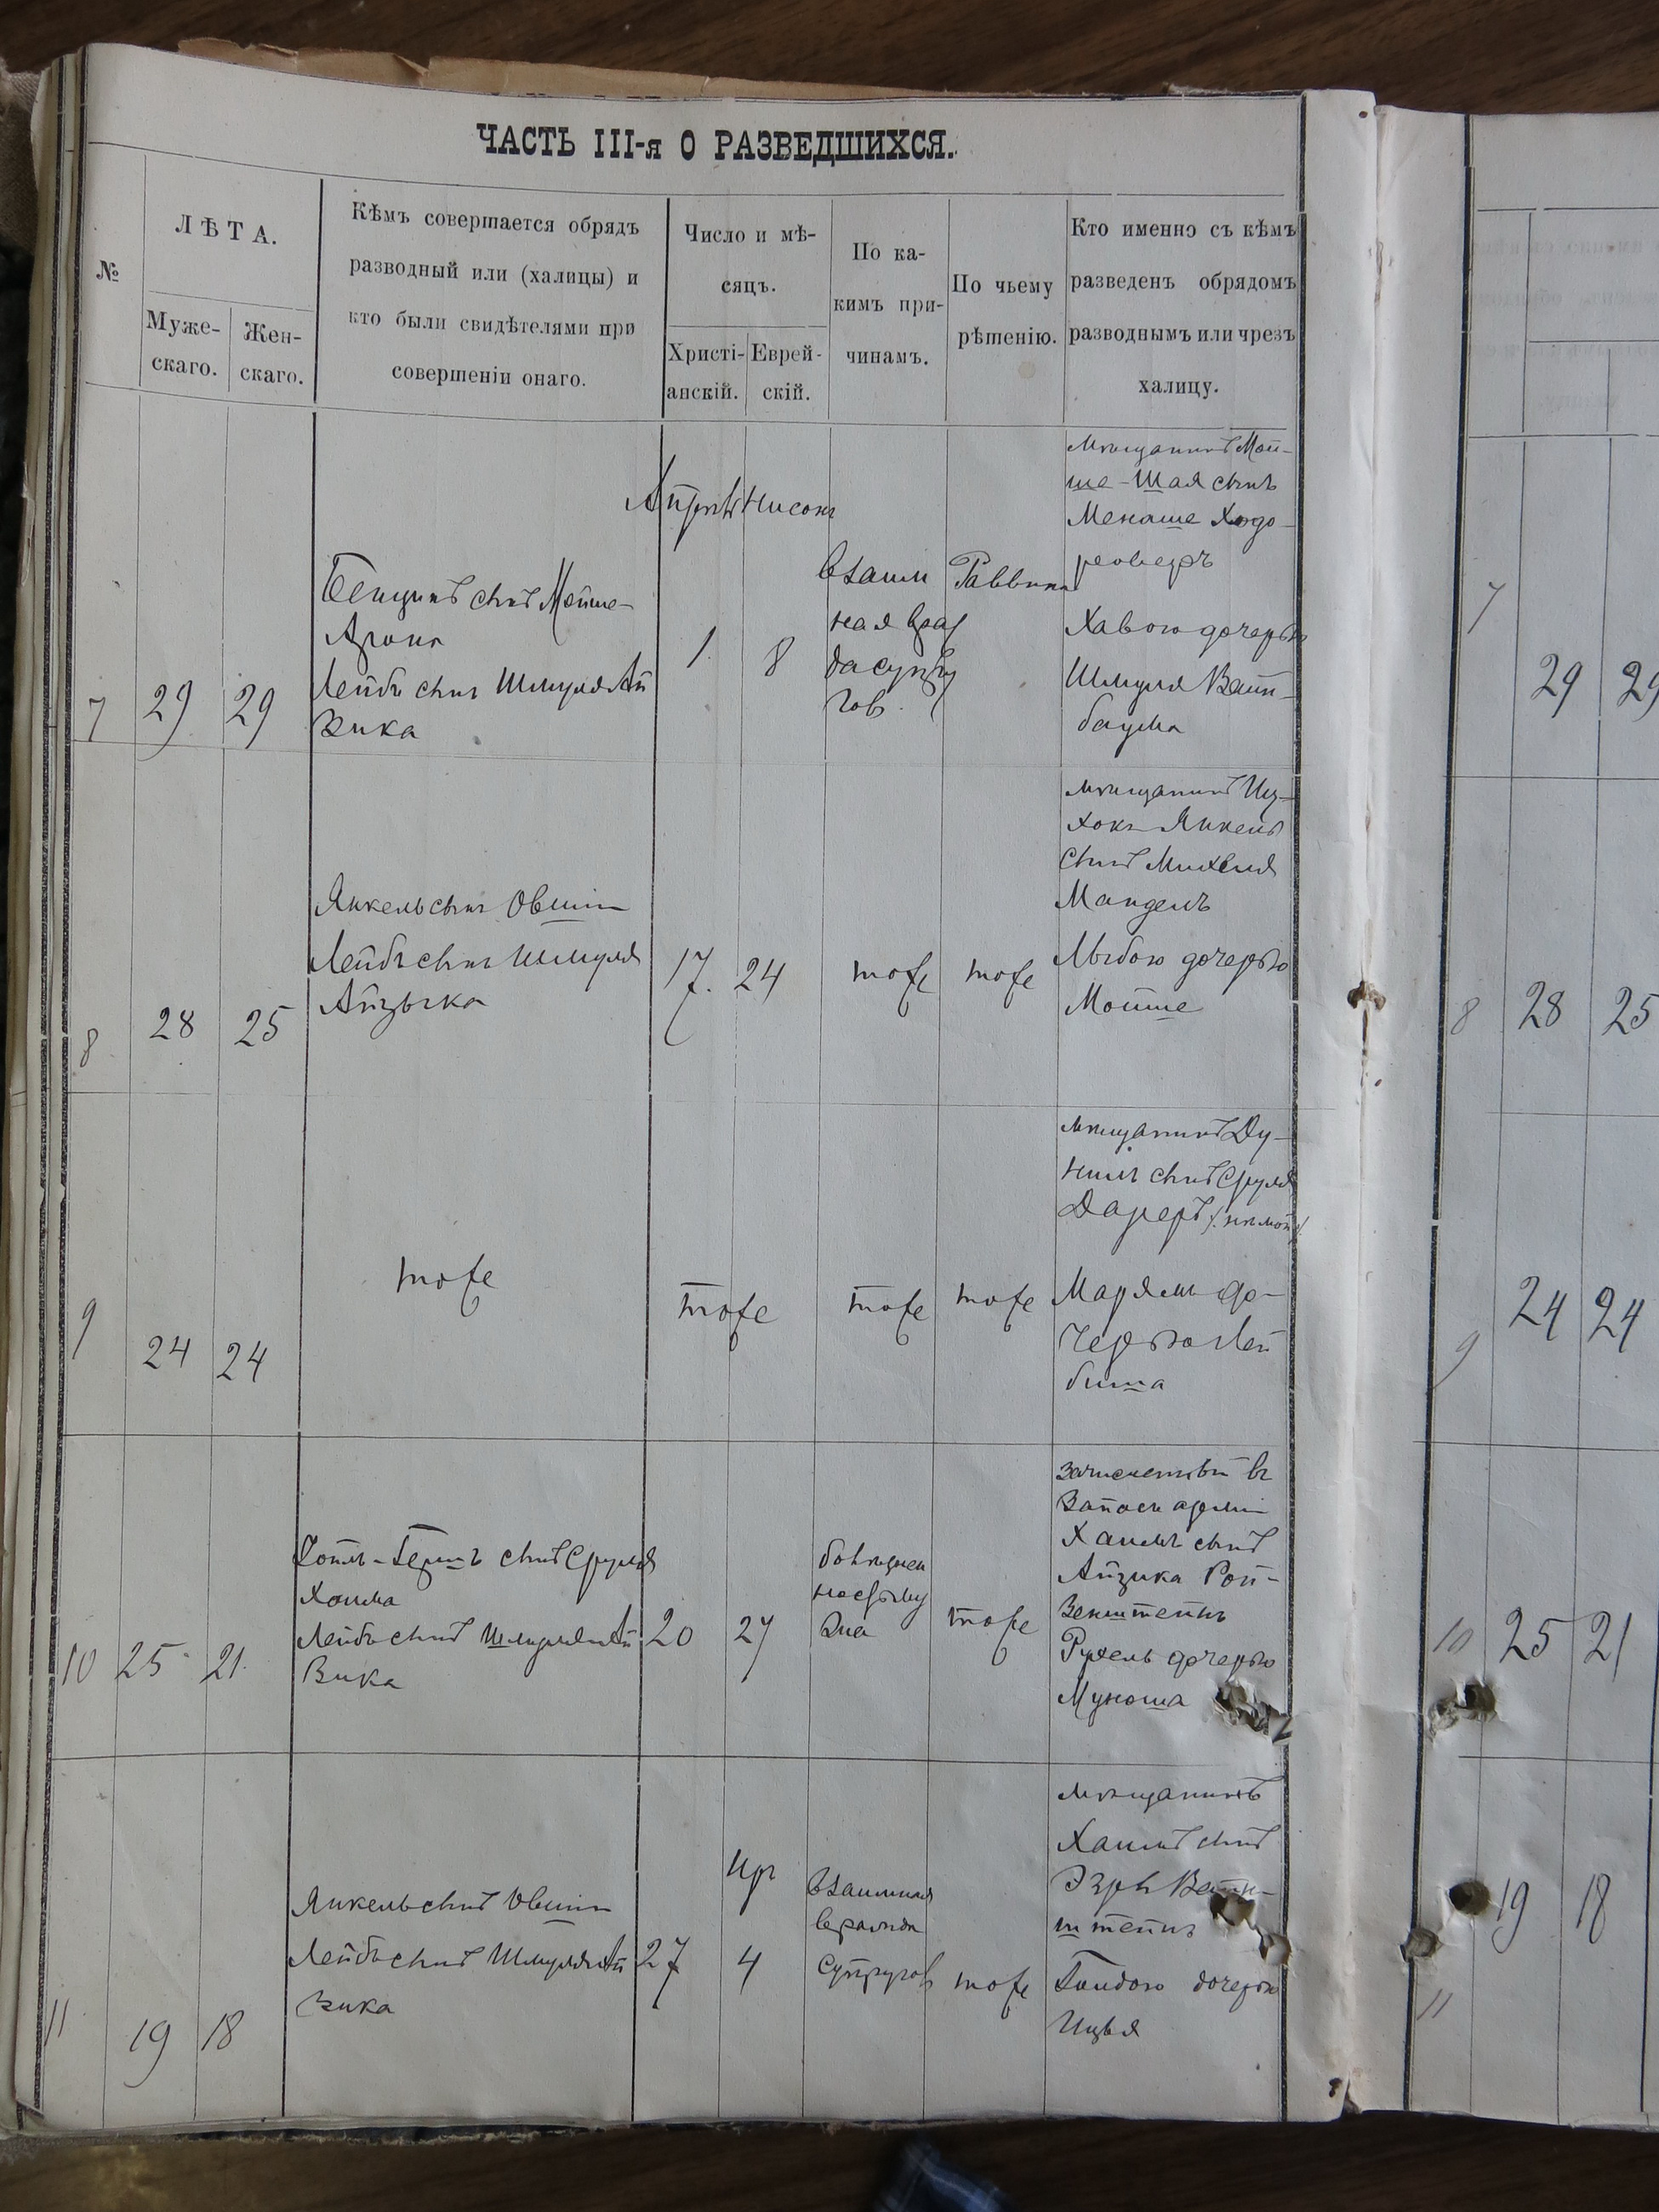 ЧАСТЬ III-я О РАЗВЕДШИХСЯ.
№
ЛѢТА.
Муже-
скаго.
Жен-
скаго.
Кѣмъ совершается обрядъ
разводный или (халицы) и
кто были свидѣтелями при
совершеніи онаго.
Число и мѣ-
сяцъ.
Христі-
анскій.
Еврей-
скій.
По ка-
кимъ при-
чинамъ.
По чьему
рѣшенію.
Кто именно съ кѣмъ
разведенъ обрядомъ
разводнымъ или чрезъ
халицу.
7
29
29
сынъ Мойше-
Арона
Лейбъ сынъ Шмуля Ай
зика
Апрѣль
1
Нисонъ
8
взаим
ная враж
да супру
гов.
Раввина
мѣщанинъ Мой-
ше-Шая сынъ
Менаше Ходо-
ровецръ
Хавою дочерью
Шмуля Вайн-
баума
8
28
25
Янкель сынъ Овшии
Лейбъ сынъ Шмуля
Айзыка
17.
24
тоже
тоже
мѣщанинъ Иц-
хокъ Янкель
сынъ Михеля
Мандель
Либою дочерью
Мойше
9
24
24
тоже
тоже
тоже
тоже
мѣщанинъ Ду-
нимъ сынъ Сруля
(нѣмой)
Марьям до-
черью Лей
биша
10
25
21
сынъ Сруля
Хаима
Лейбъ сынъ Шмуля Ай
зика
20
27
тоже
зачисленный въ
запасъ арміи
Хаимъ сынъ
Айзика Рой-
зенштейнъ
Рухель дочерью
Муноша
11
19
18
Янкель сынъ Овшии
Лейбъ сынъ Шмуля Ай
зика
27
Иръ
4
взаимная
вражда
супругов
тоже
мѣщанинъ
Хаимъ сынъ
Эзры Вайн-
штейнъ
дочерью
7
29
29
8
28
25
9
24
24
10
25
21
11
19
18